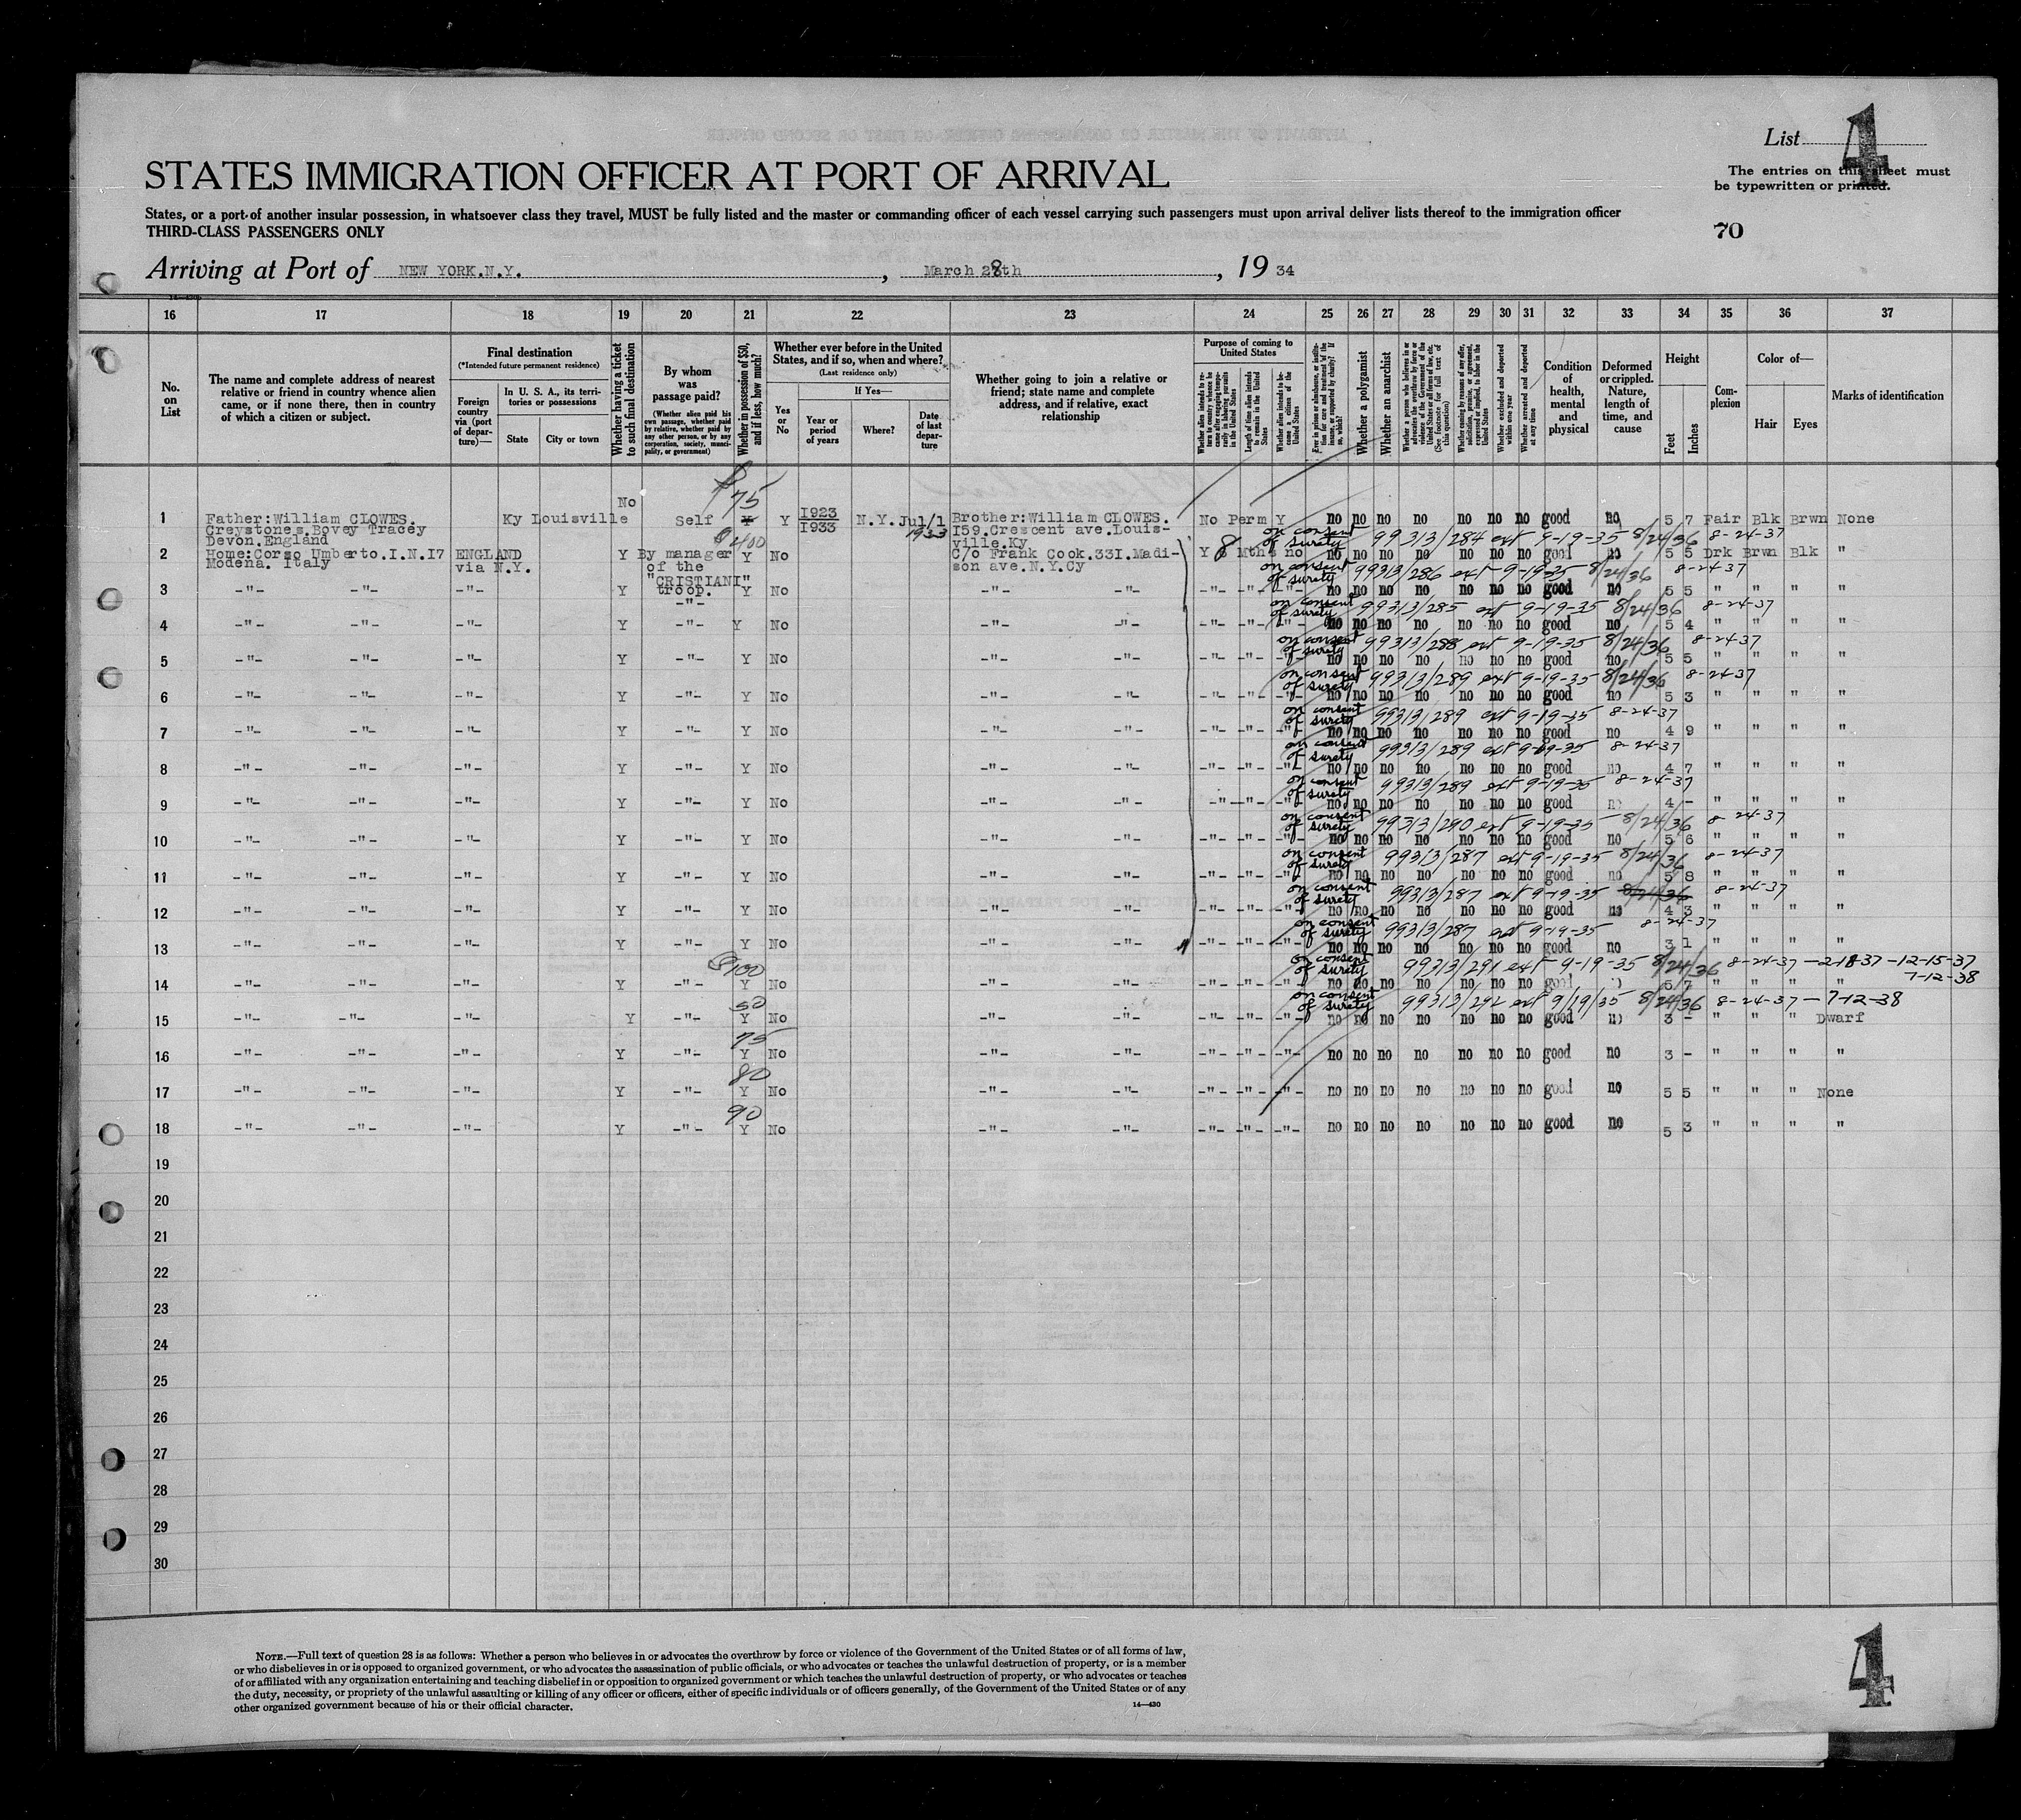 List 4
STATES IMMIGRATION OFFICER AT PORT OF ARRIVAL
The entries on this sheet must
be typewritten or printed.
States, or a port of another insular possession, in whatsoever class they travel, MUST be fully listed and the master or commanding officer of each vessel carrying such passengers must upon arrival deliver lists thereof to the immigration officer
THIRD-CLASS PASSENGERS ONLY
70
Arriving at Port of NEW YORK.N.Y. , March 28th , 19 34
16 17 18 19 20 21 22 23 24 25 26 27 28 29 30 31 32 33 34 35 36 37
No. on List
The name and complete address of nearest relative or friend in country whence alien came, or if none there, then in country of which a citizen or subject.
Final destination
(*Intended future permanent residence)
Foreign country via (port of departure)—
In U. S. A., its territories or possessions
State
City or town
Whether having a ticket to such final destination
By whom was passage paid?
(Whether alien paid his own passage, whether paid by relative, whether paid by any other person, or by any corporation, society, municipality, or government)
Whether in possession of $50, and if less, how much?
Whether ever before in the United States, and if so, when and where?
(Last residence only)
Yes or No
If Yes—
Year or period of years
Where?
Date of last departure
Whether going to join a relative or friend; state name and complete address, and if relative, exact relationship
Purpose of coming to United States
Whether alien intends to return to country whence he came after engaging temporarily in laboring pursuits in the United States
Length of time alien intends to remain in the United States
Whether alien intends to become a citizen of the United States
Ever in prison or almshouse, or institution for care and treatment of the insane, or supported by charity? If so, which?
Whether a polygamist
Whether an anarchist
Whether a person who believes in or advocates the overthrow by force or violence of the Government of the United States or all forms of law, etc. (See footnote for full text of this question)
Whether coming by reasons of any offer, solicitation, promise, or agreement, expressed or implied, to labor in the United States
Whether excluded and deported within one year
Whether arrested and deported at any time
Condition of health, mental and physical
Deformed or crippled. Nature, length of time, and cause
Height
Feet
Inches
Complexion
Color of—
Hair
Eyes
Marks of identification
1 Father:William CLOWES. Greystones.Bovey Tracey Devon.England Ky Louisville No Self $75 Y Y 1923 1933 N.Y. Jul/1 1933 Brother:William CLOWES. 159.Crescent ave.Louisville.Ky No Perm Y no no no no no no no good no 5 7 Fair Blk Brwn None
on consent of surety 99313/284 ext 9-19-35 8/24/36 8-24-37
2 Home:Corso Umberto.I.N.I7 Modena. Italy ENGLAND via N.Y. Y By manager of the "CRISTIANI" troop. $400 Y No C/o Frank Cook.33I.Madison ave.N.Y.Cy Y 8 Mths no no no no no no no no good no 5 5 Drk Brwn Blk "
on consent of surety 99313/286 ext 9-19-35 8/24/36 8-24-37
3 -"- -"- -"- Y -"- Y No -"- -"- -"- -"- -"- no no no no no no no good no 5 5 " " " "
on consent of surety 99313/285 ext 9-19-35 8/24/36 8-24-37
4 -"- -"- -"- Y -"- Y No -"- -"- -"- -"- -"- no no no no no no no good no 5 4 " " " "
on consent of surety 99313/288 ext 9-19-35 8/24/36 8-24-37
5 -"- -"- -"- Y -"- Y No -"- -"- -"- -"- -"- no no no no no no no good no 5 5 " " " "
on consent of surety 99313/289 ext 9-19-35 8/24/36 8-24-37
6 -"- -"- -"- Y -"- Y No -"- -"- -"- -"- -"- no no no no no no no good no 5 3 " " " "
on consent of surety 99313/289 ext 9-19-35 8-24-37
7 -"- -"- -"- Y -"- Y No -"- -"- -"- -"- -"- no no no no no no no good no 4 9 " " " "
on consent of surety 99313/289 ext 9-19-35 8-24-37
8 -"- -"- -"- Y -"- Y No -"- -"- -"- -"- -"- no no no no no no no good no 4 7 " " " "
on consent of surety 99313/289 ext 9-19-35 8-24-37
9 -"- -"- -"- Y -"- Y No -"- -"- -"- -"- no no no no no no no good no 4 - " " " "
on consent of surety 99313/290 ext 9-19-35 8/24/36 8-24-37
10 -"- -"- -"- Y -"- Y No -"- -"- -"- -"- -"- no no no no no no no good no 5 6 " " " "
on consent of surety 99313/287 ext 9-19-35 8/24/36 8-24-37
11 -"- -"- -"- Y -"- Y No -"- -"- -"- -"- -"- no no no no no no no good no 5 8 " " " "
on consent of surety 99313/287 ext 9-19-35 8/24/36 8-24-37
12 -"- -"- -"- Y -"- Y No -"- -"- -"- -"- -"- no no no no no no no good no 4 3 " " " "
on consent of surety 99313/287 ext 9-19-35 8-24-37
13 -"- -"- -"- Y -"- Y No -"- -"- -"- -"- -"- no no no no no no no good no 3 1 " " " "
on consent of surety 99313/291 ext 9-19-35 8/24/36 8-24-37 -2-18-37 -12-15-37 7-12-38
14 -"- -"- -"- Y -"- $100 Y No -"- -"- -"- -"- -"- no no no no no no no good no 5 7 " " " "
on consent of surety 99313/292 ext 9/19/35 8/24/36 8-24-37 - 7-12-38
15 -"- -"- -"- Y -"- 50 Y No -"- -"- -"- -"- -"- no no no no no no no good no 3 - " " " Dwarf
16 -"- -"- -"- Y -"- 75 Y No -"- -"- -"- -"- -"- no no no no no no no good no 3 - " " " "
17 -"- -"- -"- Y -"- 80 Y No -"- -"- -"- -"- -"- no no no no no no no good no 5 5 " " " None
18 -"- -"- -"- Y -"- 90 Y No -"- -"- -"- -"- -"- no no no no no no no good no 5 3 " " " "
19
20
21
22
23
24
25
26
27
28
29
30
NOTE.—Full text of question 28 is as follows: Whether a person who believes in or advocates the overthrow by force or violence of the Government of the United States or of all forms of law,
or who disbelieves in or is opposed to organized government, or who advocates the assassination of public officials, or who advocates or teaches the unlawful destruction of property, or is a member
of or affiliated with any organization entertaining and teaching disbelief in or opposition to organized government or which teaches the unlawful destruction of property, or who advocates or teaches
the duty, necessity, or propriety of the unlawful assaulting or killing of any officer or officers, either of specific individuals or of officers generally, of the Government of the United States or of any
other organized government because of his or their official character.
14—430
4